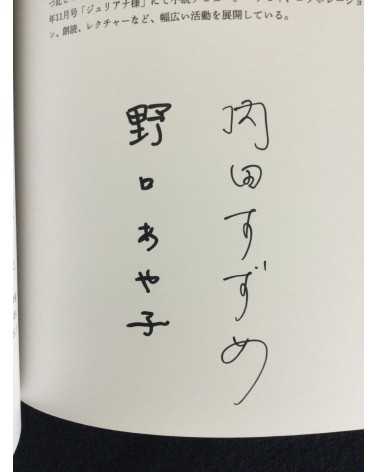 年11月号「ジュリアナ様」にて小説デビュー。
ン、朗読、レクチャーなど、幅広い活動を展開している。
内田すずめ
野口あや子